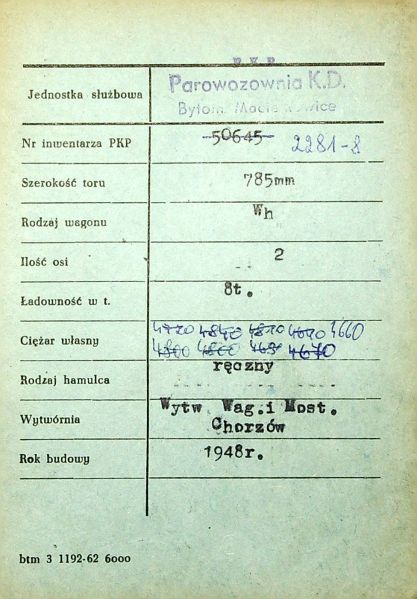 P.K.P.
Jednostka służbowa Parowozownia K.D.
Bytom Maciejkowice
Nr inwentarza PKP 50645 2281-8
Szerokość toru 785mm
Rodzaj wagonu Wh
Ilość osi 2
Ładowność w t. 8t.
Ciężar własny 4720 4840 4810 4640 4660
4800 4800 4690 4670
Rodzaj hamulca ręczny
Wytwórnia Wytw. Wag.i Most.
Chorzów
Rok budowy 1948r.
btm 3 1192-62 6000